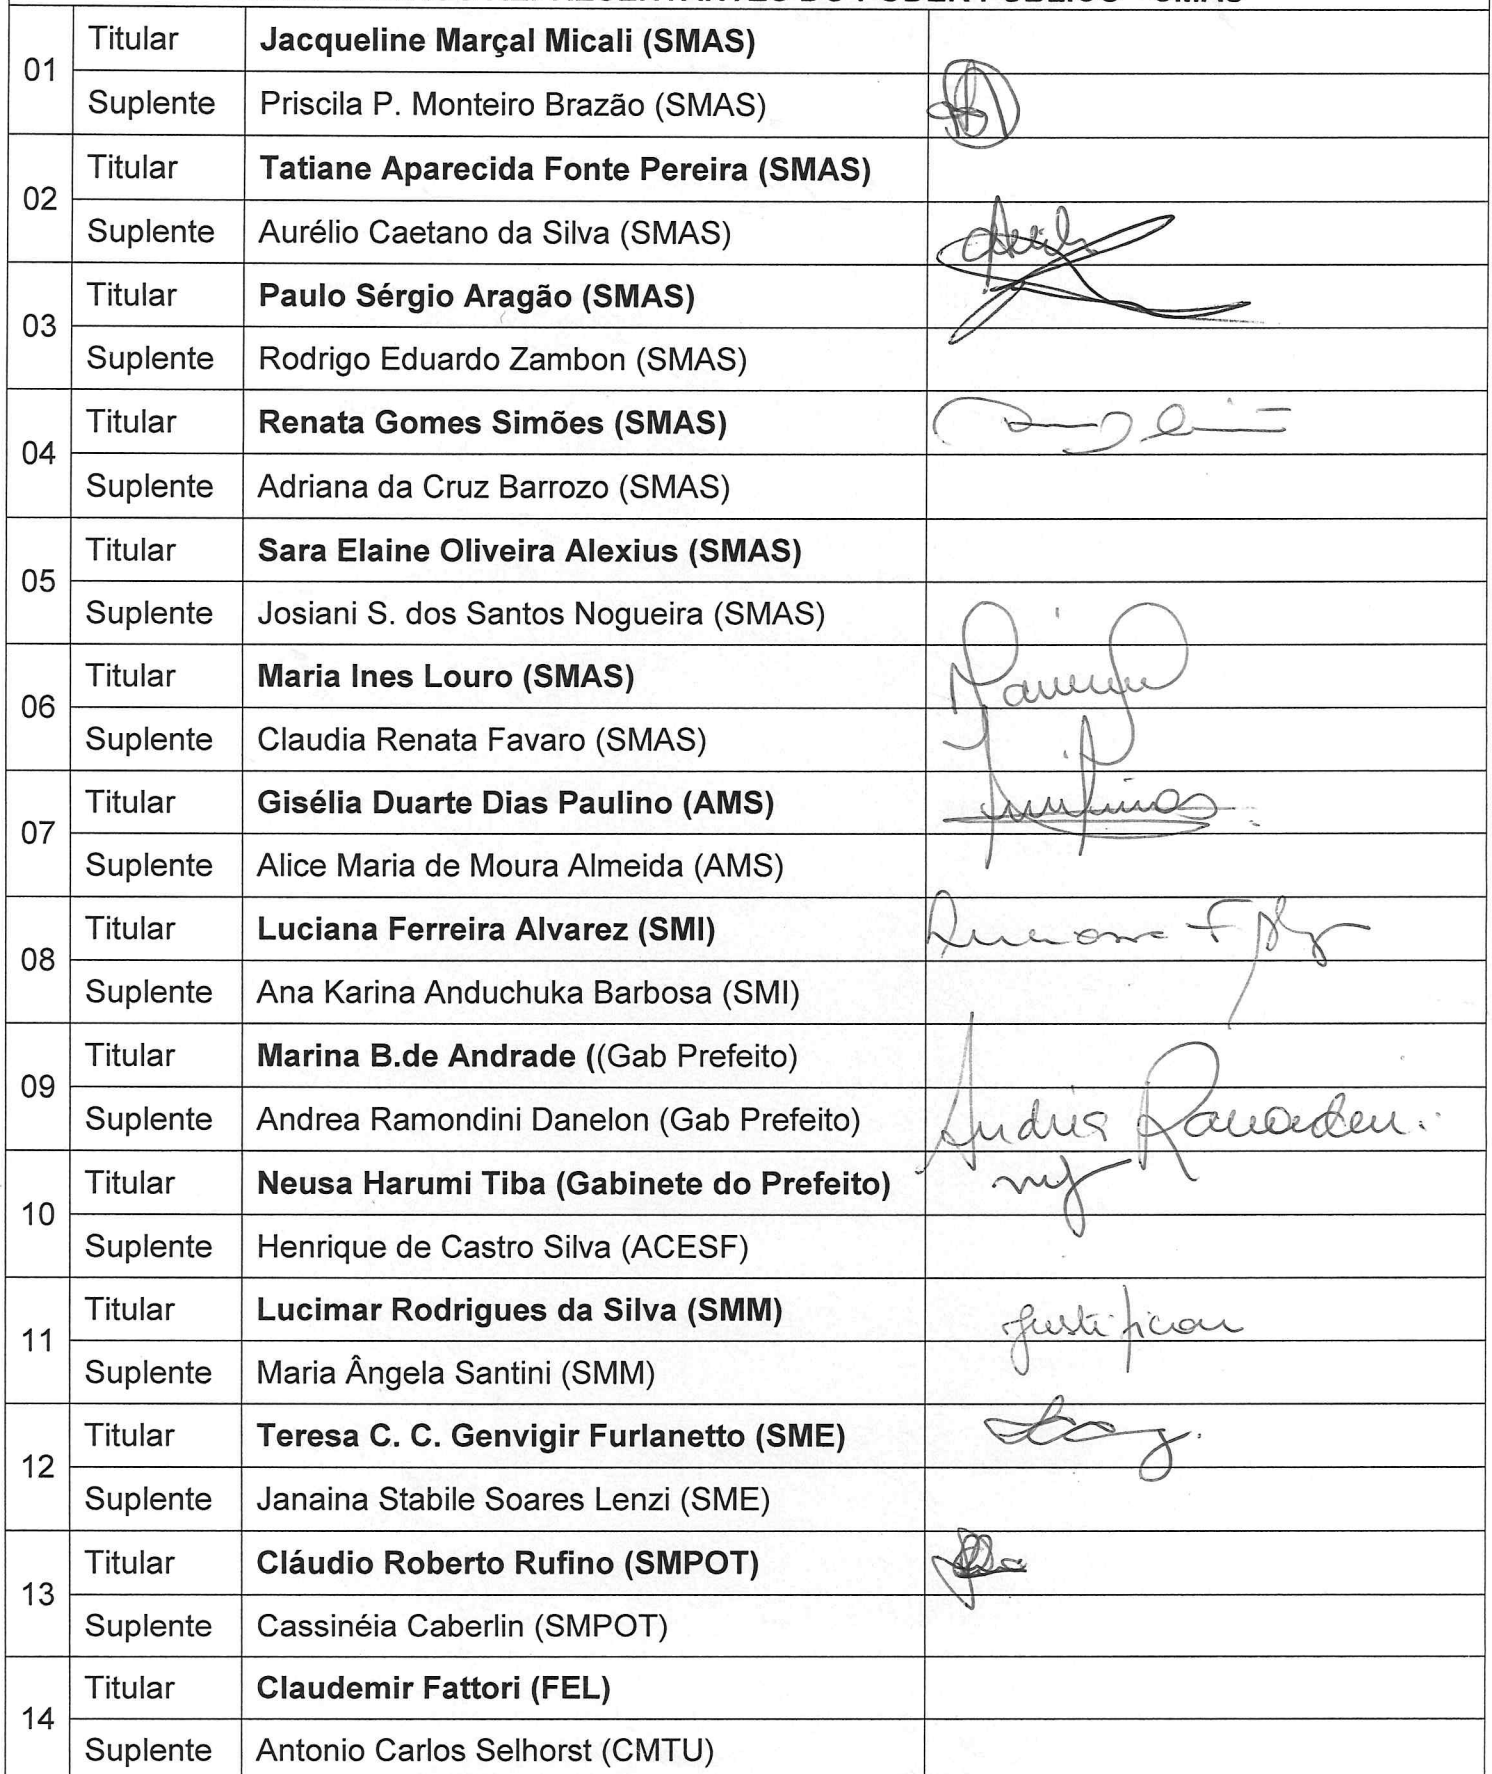 01 Titular Jacqueline Marçal Micali (SMAS)
Suplente Priscila P. Monteiro Brazão (SMAS)
02 Titular Tatiane Aparecida Fonte Pereira (SMAS)
Suplente Aurélio Caetano da Silva (SMAS)
03 Titular Paulo Sérgio Aragão (SMAS)
Suplente Rodrigo Eduardo Zambon (SMAS)
04 Titular Renata Gomes Simões (SMAS)
Suplente Adriana da Cruz Barrozo (SMAS)
05 Titular Sara Elaine Oliveira Alexius (SMAS)
Suplente Josiani S. dos Santos Nogueira (SMAS)
06 Titular Maria Ines Louro (SMAS)
Suplente Claudia Renata Favaro (SMAS)
07 Titular Gisélia Duarte Dias Paulino (AMS)
Suplente Alice Maria de Moura Almeida (AMS)
08 Titular Luciana Ferreira Alvarez (SMI)
Suplente Ana Karina Anduchuka Barbosa (SMI)
09 Titular Marina B.de Andrade ((Gab Prefeito)
Suplente Andrea Ramondini Danelon (Gab Prefeito)
10 Titular Neusa Harumi Tiba (Gabinete do Prefeito)
Suplente Henrique de Castro Silva (ACESF)
11 Titular Lucimar Rodrigues da Silva (SMM) justificou
Suplente Maria Ângela Santini (SMM)
12 Titular Teresa C. C. Genvigir Furlanetto (SME)
Suplente Janaina Stabile Soares Lenzi (SME)
13 Titular Cláudio Roberto Rufino (SMPOT)
Suplente Cassinéia Caberlin (SMPOT)
14 Titular Claudemir Fattori (FEL)
Suplente Antonio Carlos Selhorst (CMTU)